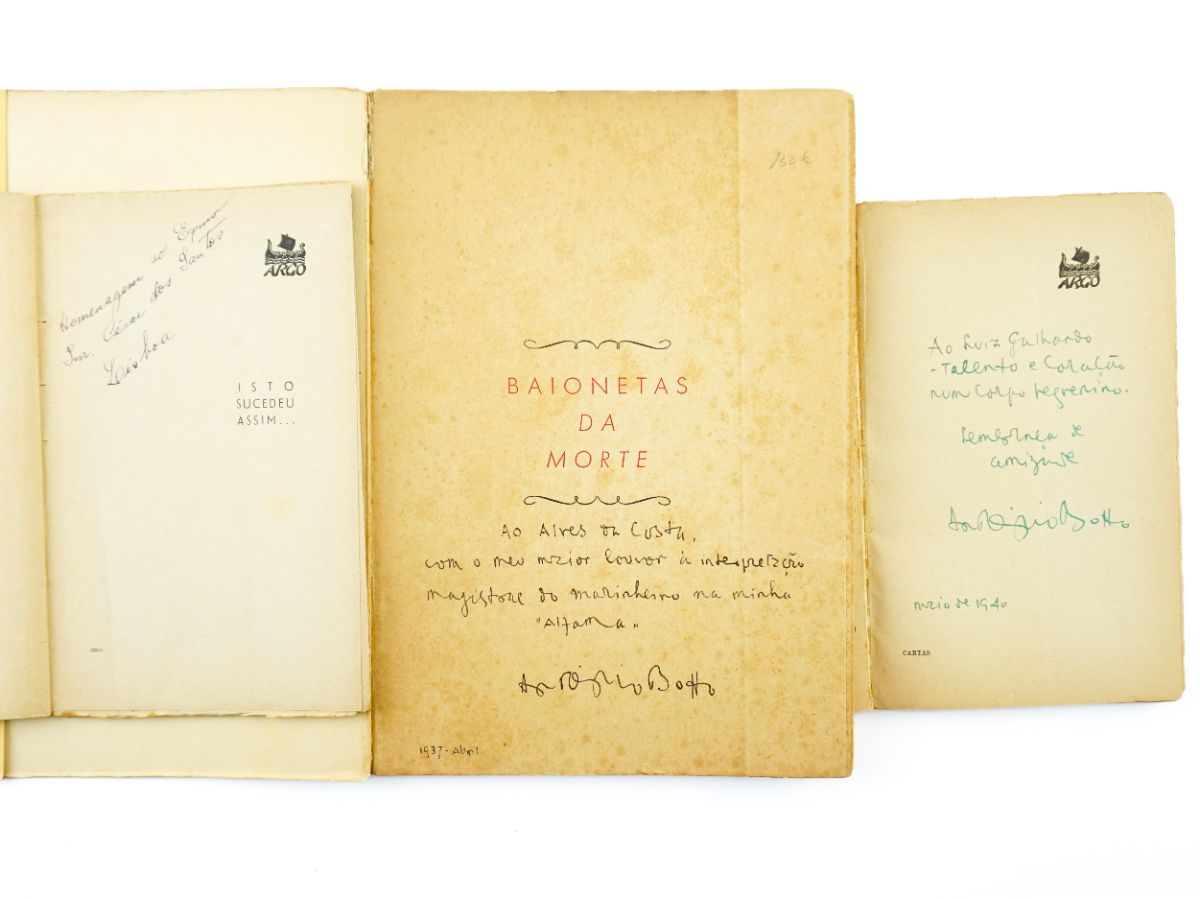 Homenagem ao Exmo
Snr. César dos Santos
Lisboa
ARGO
ISTO
SUCEDEU
ASSIM...
150 €
BAIONETAS
DA
MORTE
Ao Alves da Costa,
com o meu maior louvor à interpretação
magistral do marinheiro na minha
"Alfama".
António Botto
1937 - Abril
ARGO
Ao Luiz Galhardo
- Talento e Coração
num corpo pequenino.
Lembrança de
amizade
António Botto
maio de 1940
CARTAS